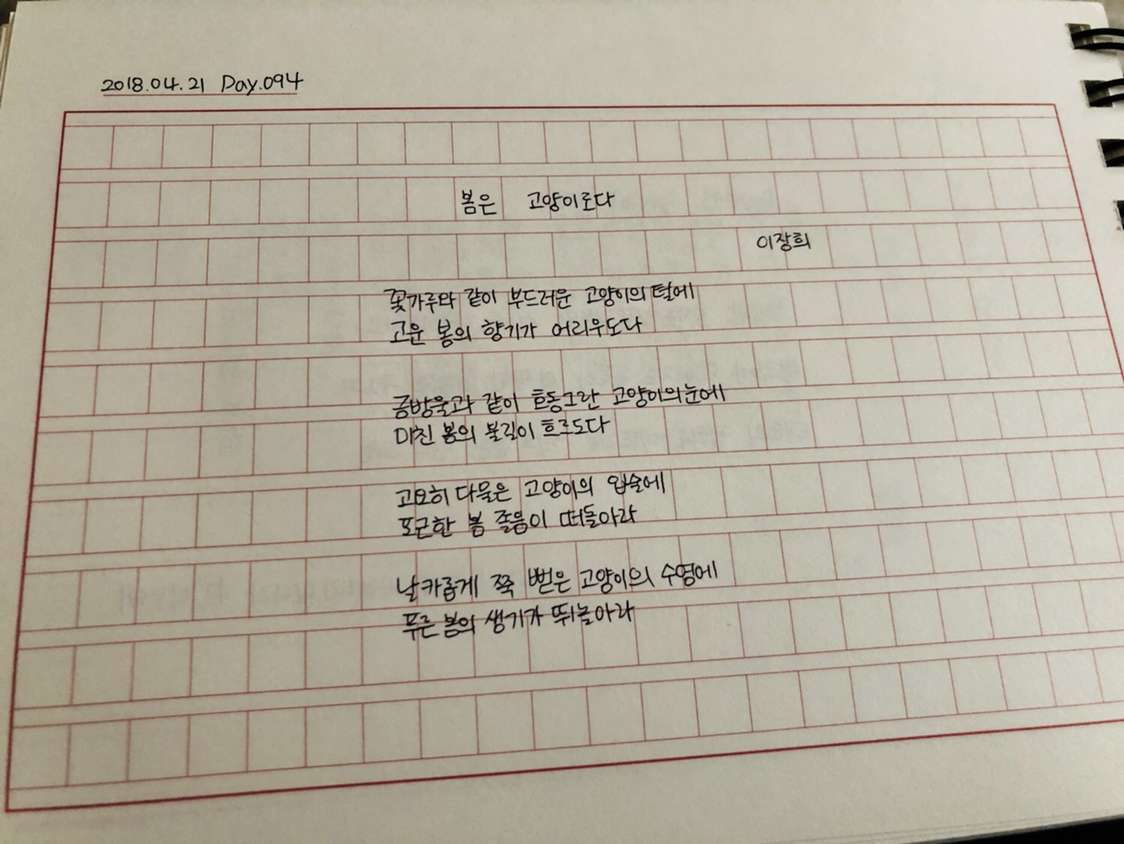 2018.04.21 Day.094
봄은 고양이로다
이장희
꽃가루와 같이 부드러운 고양이의 털에
고운 봄의 향기가 어리우도다
금방울과 같이 호동그란 고양이의 눈에
미친 봄의 불길이 흐르도다
고요히 다물은 고양이의 입술에
포근한 봄 졸음이 떠돌아라
날카롭게 쭉 뻗은 고양이의 수염에
푸른 봄의 생기가 뛰놀아라